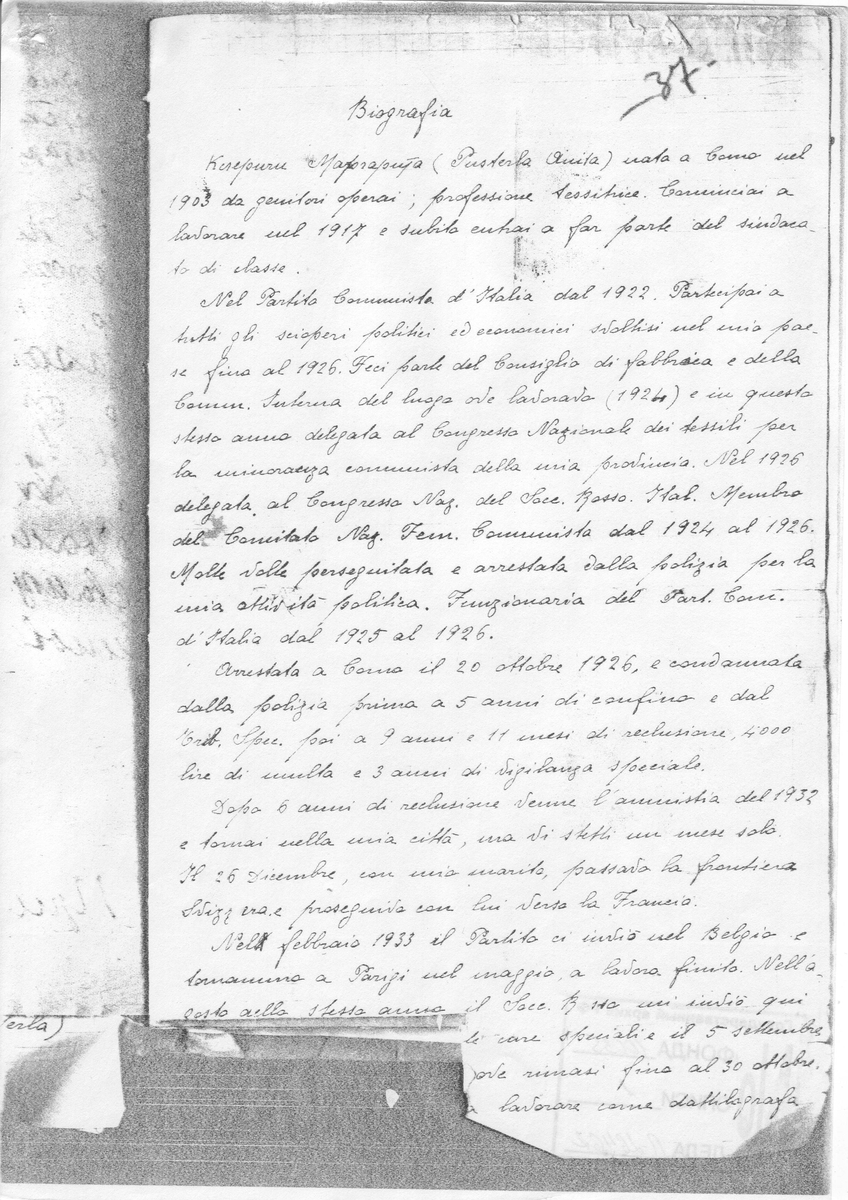 37.
Biografia
Клерични Маргарита (Pusterla Anita) nata a Como nel
1903 da genitori operai; professione tessitrice. Cominciai a
lavorare nel 1917 e subito entrai a far parte del sindaca-
to di classe.
Nel Partito Comunista d'Italia dal 1922. Partecipai a
tutti gli scioperi politici ed economici svoltisi nel mio pae-
se fino al 1926. Feci parte del Consiglio di fabbrica e della
Comm. Interna del luogo ove lavoravo (1924) e in questo
stesso anno delegata al Congresso Nazionale dei tessili per
la minoranza comunista della mia provincia. Nel 1926
delegata al Congresso Naz. del Socc. Rosso. Ital. Membro
del Comitato Naz. Fem. Comunista dal 1924 al 1926.
Molte volte perseguitata e arrestata dalla polizia per la
mia attività politica. Funzionaria del Part. Com.
d'Italia dal 1925 al 1926.
Arrestata a Como il 20 ottobre 1926, e condannata
dalla polizia prima a 5 anni di confino e dal
Trib. Spec. poi a 9 anni e 11 mesi di reclusione, 4000
lire di multa e 3 anni di vigilanza speciale.
Dopo 6 anni di reclusione venne l'amnistia del 1932
e tornai nella mia città, ma vi stetti un mese solo.
Il 26 Dicembre, con mio marito, passavo la frontiera
Svizzera e proseguivo con lui verso la Francia.
Nel febbraio 1933 il Partito ci inviò nel Belgio e
tornammo a Parigi nel maggio, a lavoro finito. Nell'a-
gosto dello stesso anno il Socc. Rosso mi inviò qui
cure speciali e il 5 settembre
ove rimasi fino al 30 ottobre.
a lavorare come dattilografa
terla)
ФОНДА